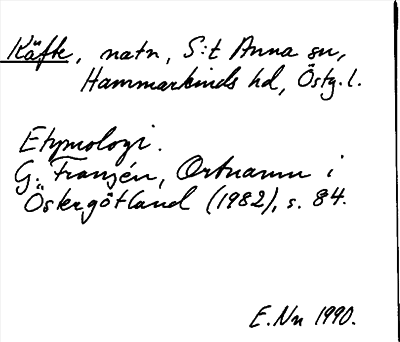 Käfte, natn, S:t Anna sn,
Hammarkinds hd, Östg.l.
Etymologi.
G. Franzén, Ortnamn i
Östergötland (1982), s. 84.
E.Nn 1990.